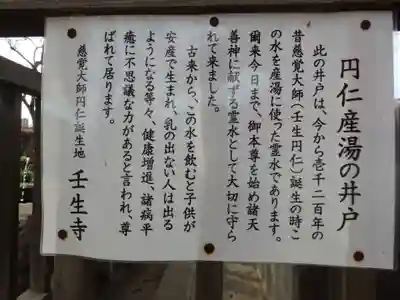 円仁産湯の井戸
此の井戸は、今から壱千二百年の
昔慈覚大師(壬生円仁)誕生の時こ
の水を産湯に使った霊水であります。
爾来今日まで、御本尊を始め諸天
善神に献ずる霊水として大切に守ら
れて来ました。
古来から、この水を飲むと子供が
安産で生まれ、乳の出ない人は出る
ようになる等々、健康増進、諸病平
癒に不思議な力があると言われ、尊
ばれて居ります。
慈覚大師円仁誕生地 壬生寺